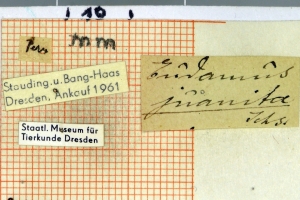 10
mm
Peru
Stauding. u. Bang-Haas
Dresden, Ankauf 1961
Staatl. Museum für
Tierkunde Dresden
Eudamus
juanita